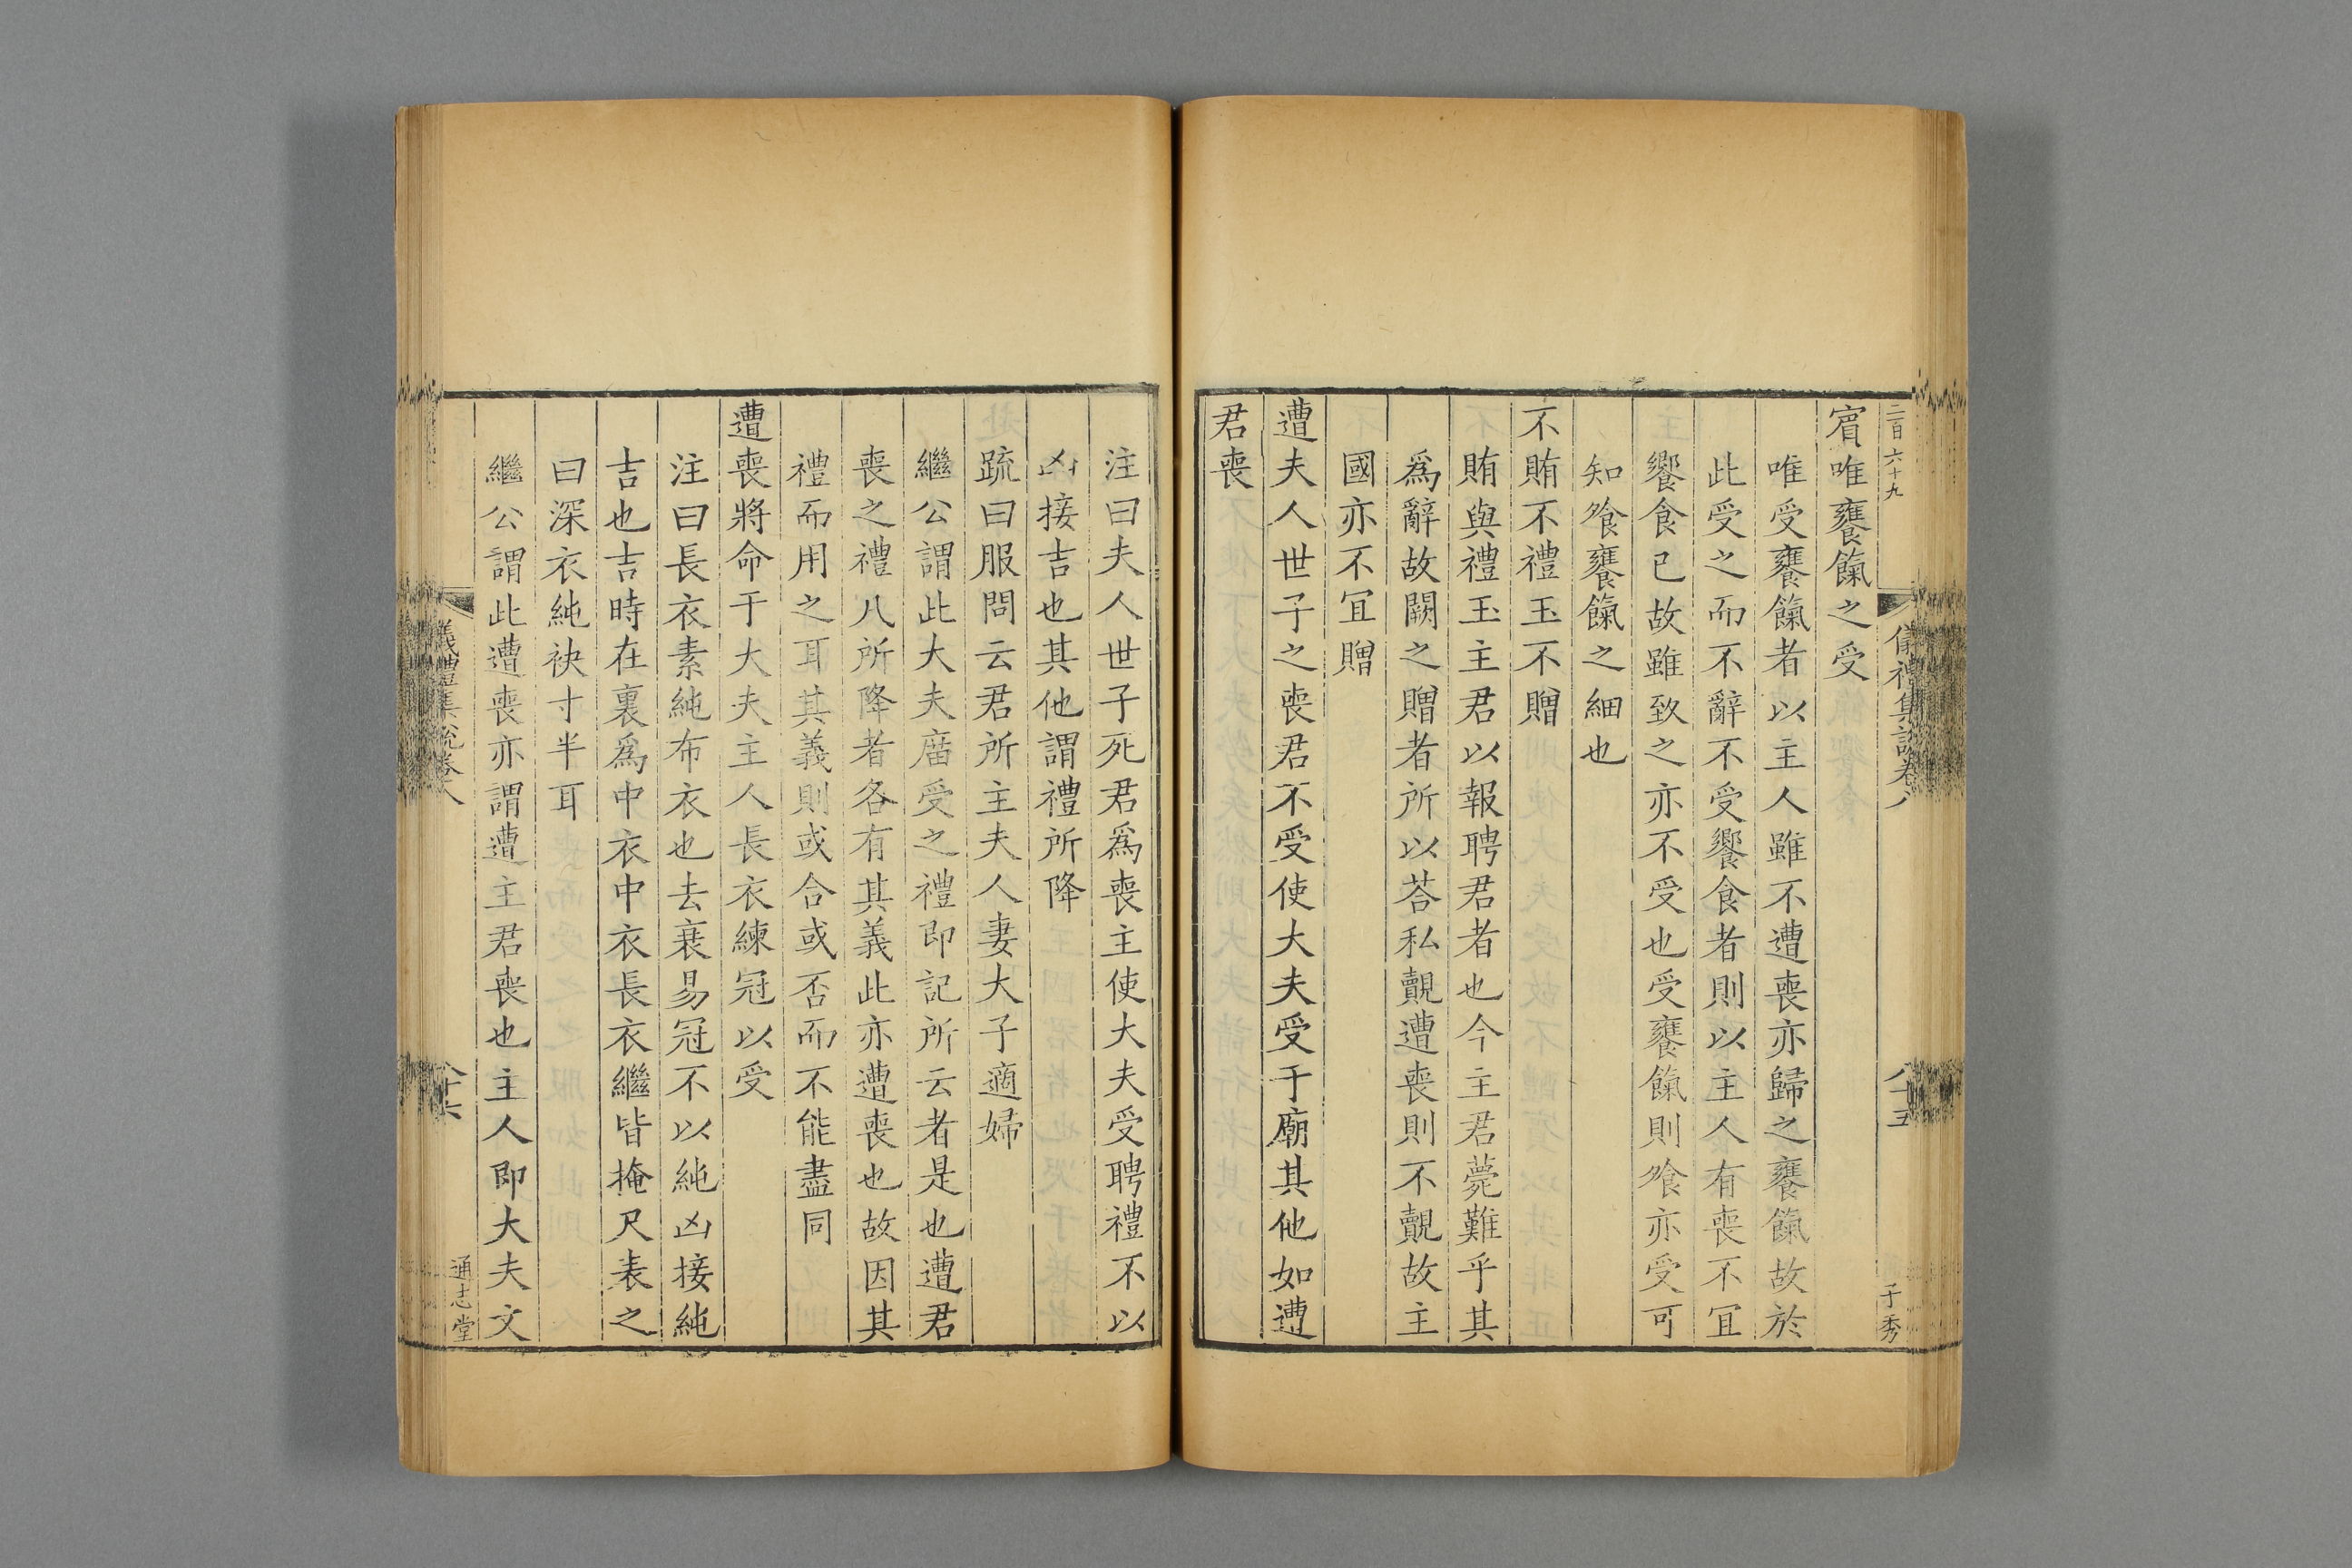 二百六十九
儀禮集説卷八
八十五
于秀
賔唯饔餼之受
唯受饔餼者以主人雖不遭喪亦歸之饔餼故於
此受之而不辭不受饗食者則以主人有喪不宜
饗食已故雖致之亦不受也受饔餼則飧亦受可
知飧饔餼之細也
不賄不禮玉不贈
賄與禮玉主君以報聘君者也今主君薨難乎其
爲辭故闕之贈者所以荅私覿遭喪則不覿故主
國亦不宜贈
遭夫人世子之喪君不受使大夫受于廟其他如遭
君喪
注曰夫人世子死君爲喪主使大夫受聘禮不以
凶接吉也其他謂禮所降
疏曰服問云君所主夫人妻大子適婦
繼公謂此大夫廟受之禮即記所云者是也遭君
喪之禮八所降者各有其義此亦遭喪也故因其
禮而用之耳其義則或合或否而不能盡同
遭喪將命于大夫主人長衣練冠以受
注曰長衣素純布衣也去衰易冠不以純凶接純
吉也吉時在裏爲中衣中衣長衣繼皆掩尺表之
曰深衣純袂寸半耳
繼公謂此遭喪亦謂遭主君喪也主人即大夫文
儀禮集說卷八
八十六
通志堂